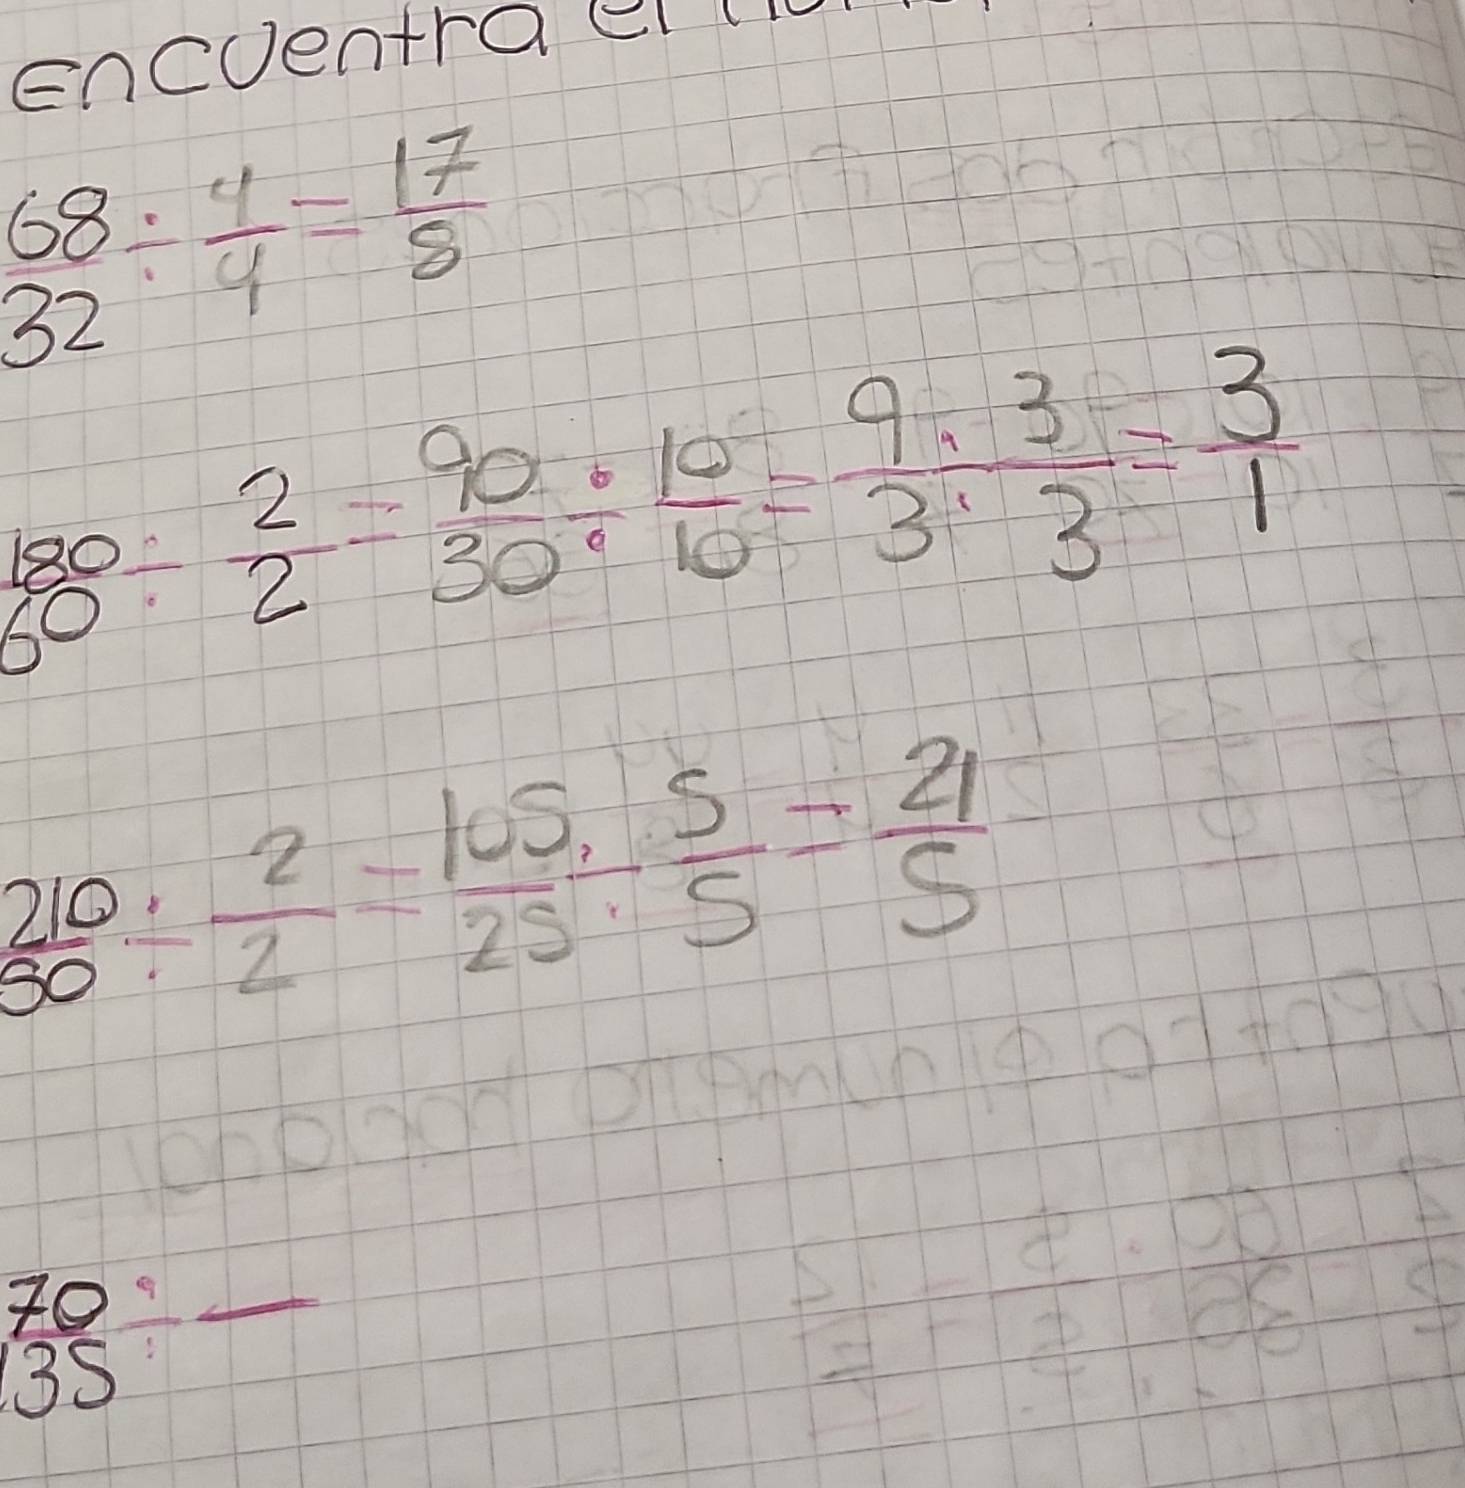 Encuentra el
68/32 ÷ 4/4 = 17/8
180/60 ÷ 2/2 = 90/30 ÷ 10/10 = 9/3 ÷ 3/3 = 3/1
210/50 ÷ 2/2 = 105/25 ÷ 5/5 = 21/5
70/135 ÷ —